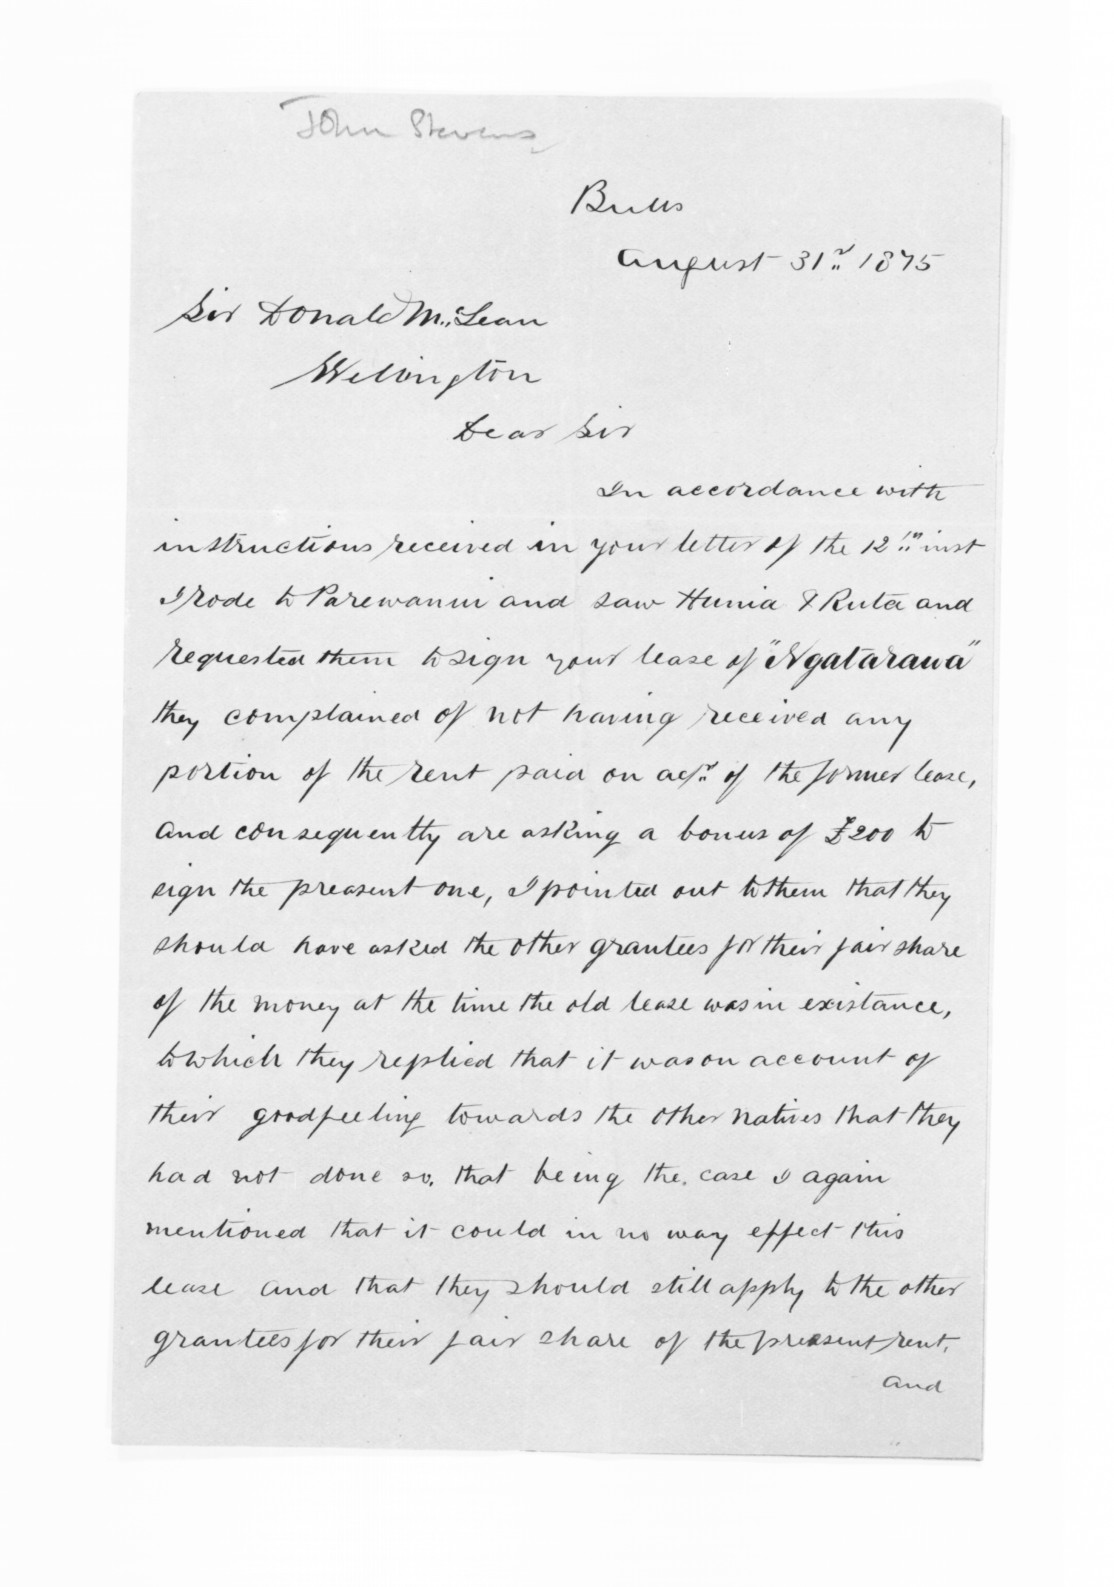 John Stevens
Bulls
August 31st 1875
Sir Donald McLean
Wellington
Dear Sir
In accordance with
instructions received in your letter of the 12th inst
I rode to Parewanui and saw Hunia & Ruta and
requested them to sign your lease of "Ngatarawa"
they complained of not having received any
portion of the rent paid on acct of the former lease,
and consequently are asking a bonus of £200 to
sign the preasent one, I pointed out to them that they
should have asked the other grantees for their fair share
of the money at the time the old lease was in existance,
to which they replied that it was on account of
their good feeling towards the other natives that they
had not done so. that being the case I again
mentioned that it could in no way effect this
lease and that they should still apply to the other
grantees for their fair share of the preasent rent.
and